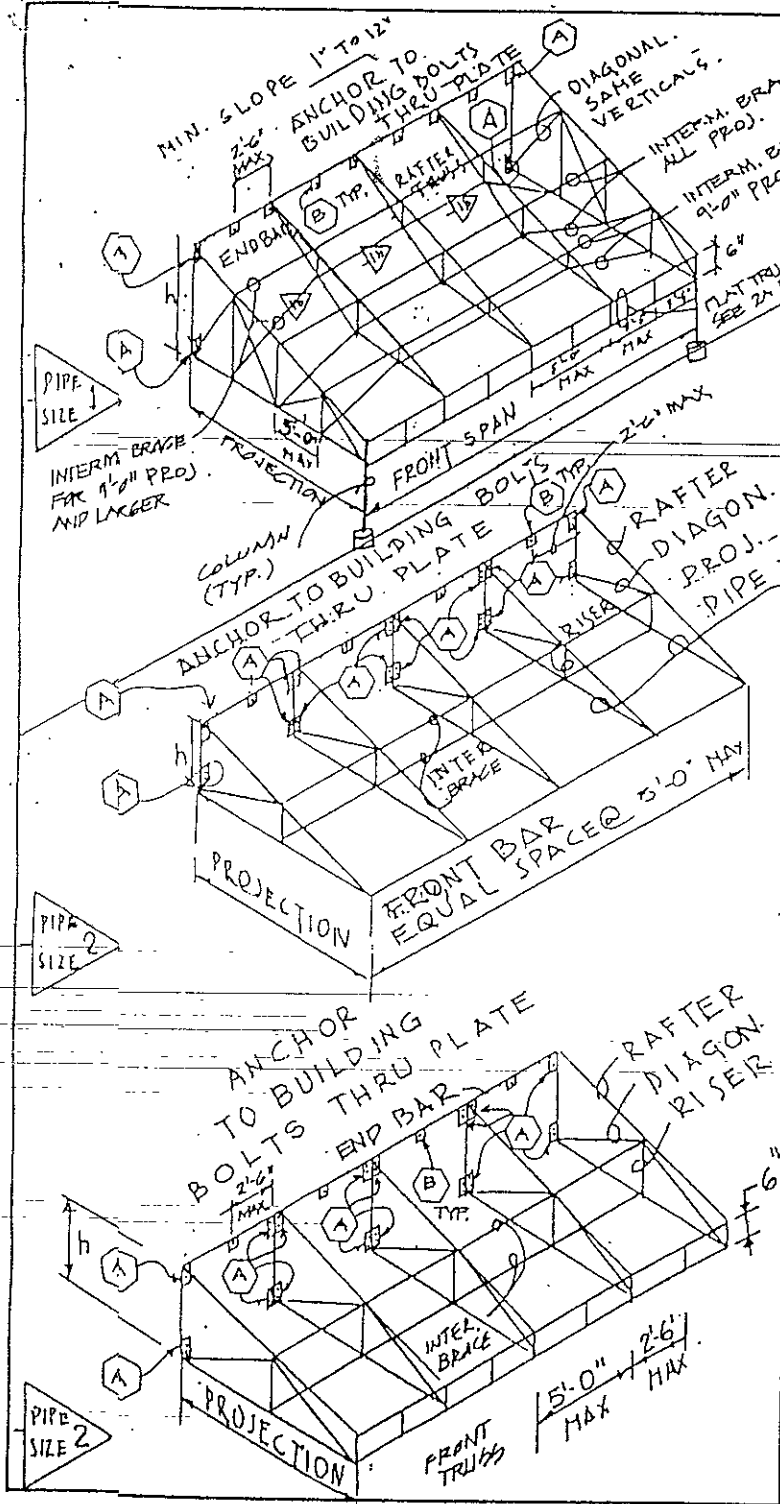 MIN. SLOPE 1" TO 12"
ANCHOR TO
BUILDING BOLTS
THRU PLATE
2'-6"
MAX
A
DIAGONAL.
SAME
VERTICALS.
A
INTERM. BRA
ALL PROJ.
INTERM. B
9'-0" PRO
B TYP.
RAFTER
TRUSS
END BAR
A
h
A
6"
FLAT TRU
SEE 24
PIPE
SIZE 1
5'-0
MAX
PROJECTION
INTERM. BRACE
FOR 9'-0" PROJ.
AND LARGER
MAX
MAX
FRONT SPAN
COLUMN
(TYP.)
ANCHOR TO BUILDING BOLTS
THRU PLATE
2'-6" MAX
B TYP.
A
RAFTER
DIAGON.
PROJ.
PIPE
A
A
A
A
RISER
h
A
INTER
BRACE
PROJECTION
FRONT BAR
EQUAL SPACE @ 5'-0" MAX
PIPE
SIZE 2
ANCHOR
TO BUILDING
BOLTS THRU PLATE
END BAR
RAFTER
DIAGON.
RISER
2'-6"
MAX
A
A
A
B
TYP.
6"
h
A
A
INTER.
BRACE
PROJECTION
FRONT
TRUSS
5'-0"
MAX
2'-6"
MAX
PIPE
SIZE 2